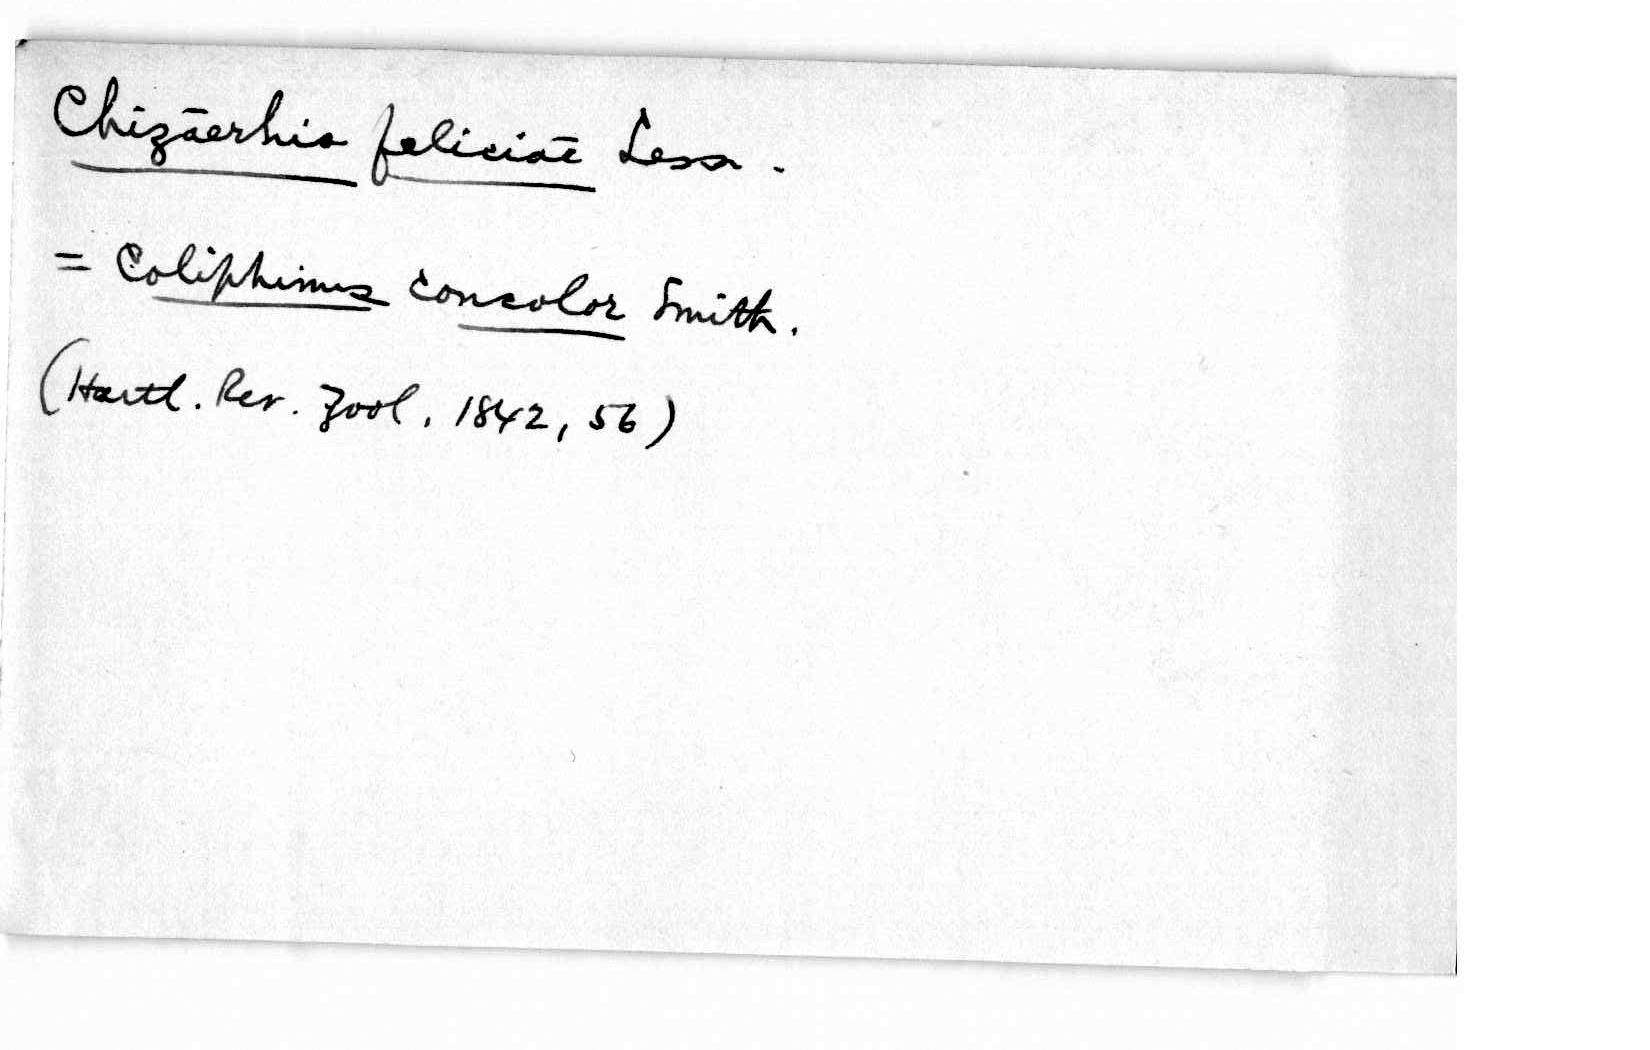 Chizāerhis feliciāe Less.
= Coliphimus concolor Smith.
(Hartl. Rev. Zool. 1842, 56)